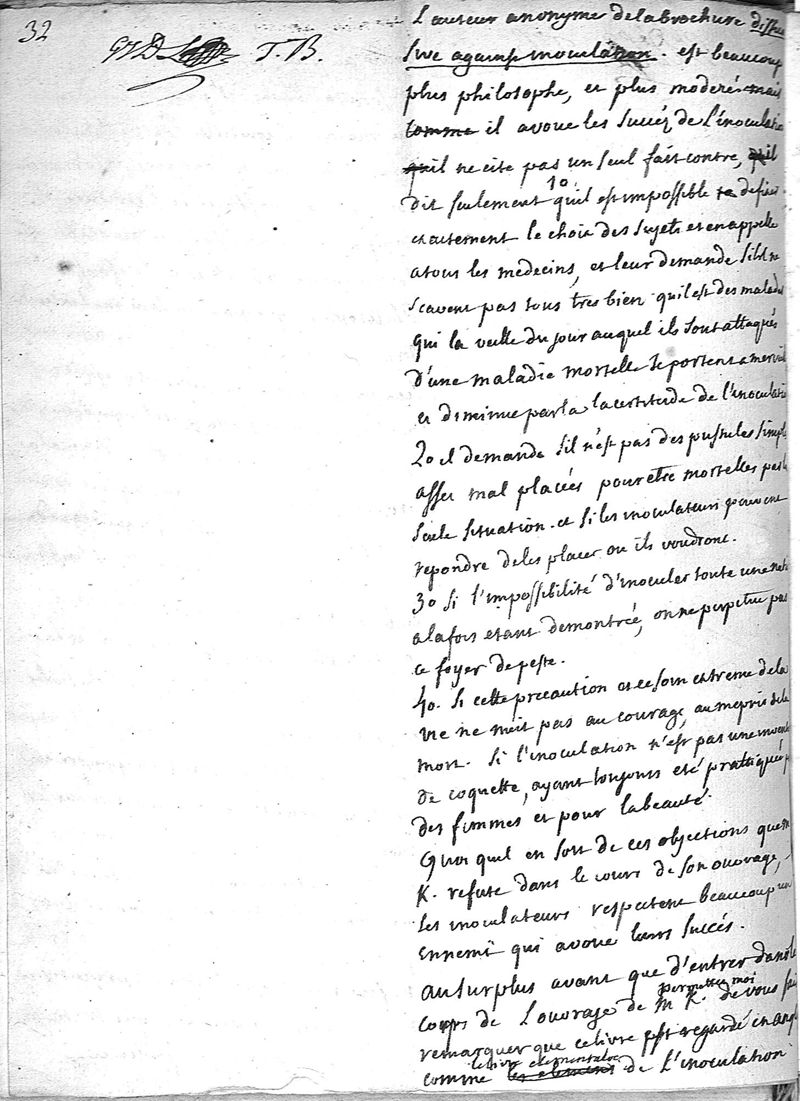 32
T. B.
L'auteur anonyme de la brochure
sive against inoculation. est beaucoup
plus philosophe, et plus moderé mais
comme il avoue les succéz de L'inoculation
qu'il ne cite pas un seul fait contre, qu'il
dit seulement 1o. qu'il est impossible de definir
exactement le choix des sujets et en appelle
a tous les medecins, et leur demande sils ne
scavent pas tous tres bien qu'il est des malades
qui la veille du jour auquel ils sont attaqués
d'une maladie mortelle se portent a merveil
et diminue par la la certitude de l'inoculati
2o il demande sil n'est pas des pustules simples
assez mal placées pour etre mortelles par la
seule situation. et si les inoculateurs peuvent
repondre de les placer ou ils voudront.
3o si l'impossibilité d'inoculer toute une
a la fois etant demontrée, on ne perpetue pas
ce foyer de peste.
4o. si cette precaution et ce soin extreme de la
vie ne nuit pas au courage, au mepris de la
mort. si l'inoculation n'est pas une invent
de coquette, ayant toujours eté prattiqué p
des femmes et pour la beauté.
Quoi quil en soit de ces objections que m
K. refute dans le cours de son ouvrage,
les inoculateurs respectent beaucoup un
Ennemi qui avoue leurs succés.
au surplus avant que d'entrer dans le
permettez moi
corps de L'ouvrage de m K. de vous fai
remarquer que ce livre est regardé en angl
le livre elementaire
comme les elements de L'inoculation